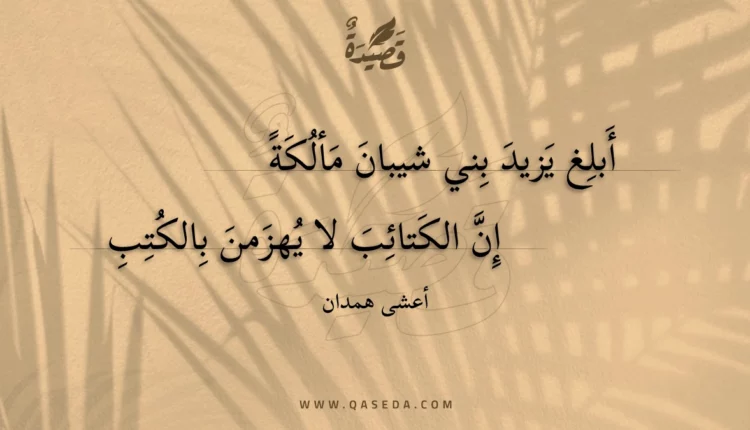 قَصِيْدَةٌ
أَبلِغ يَزيدَ بِني شيبانَ مَألُكَةً
إِنَّ الكَتائِبَ لا يُهزَمنَ بِالكُتِبِ
أعشى همدان
WWW.QASEDA.COM